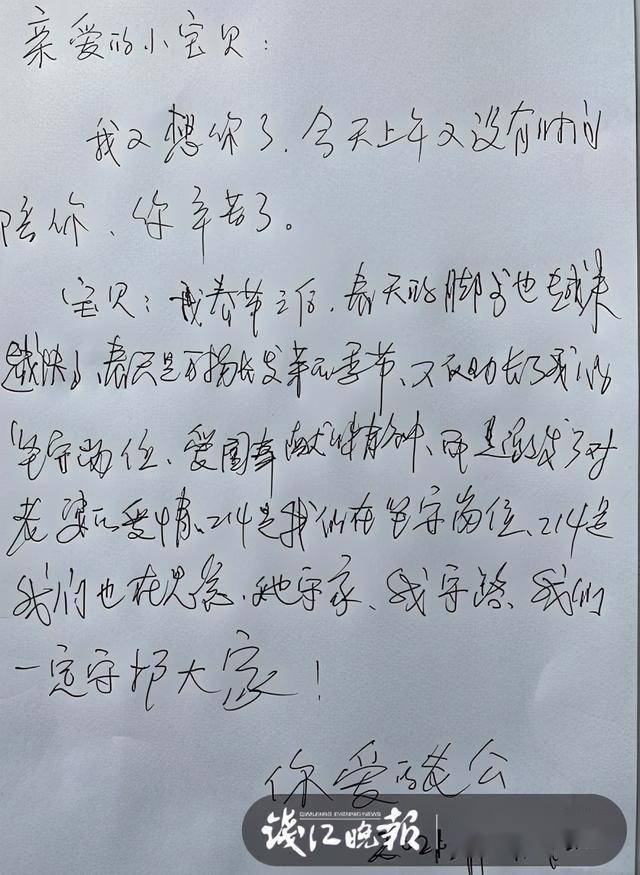 亲爱的小宝贝:
我又想你了、今天上午又没有时间
陪你、你辛苦了。
宝贝:春节之后、春天的脚步也越来
越快、春天是万物生发芽的季节、不仅助长了我们
坚守岗位、爱国奉献精神、而是激发了对
老婆的爱情、214是我们在坚守岗位、214是
我们也在思念、她守家、我守路、我们
一定守护大家!
你爱的老公
钱江晚报
QIANJIANG EVENING NEWS